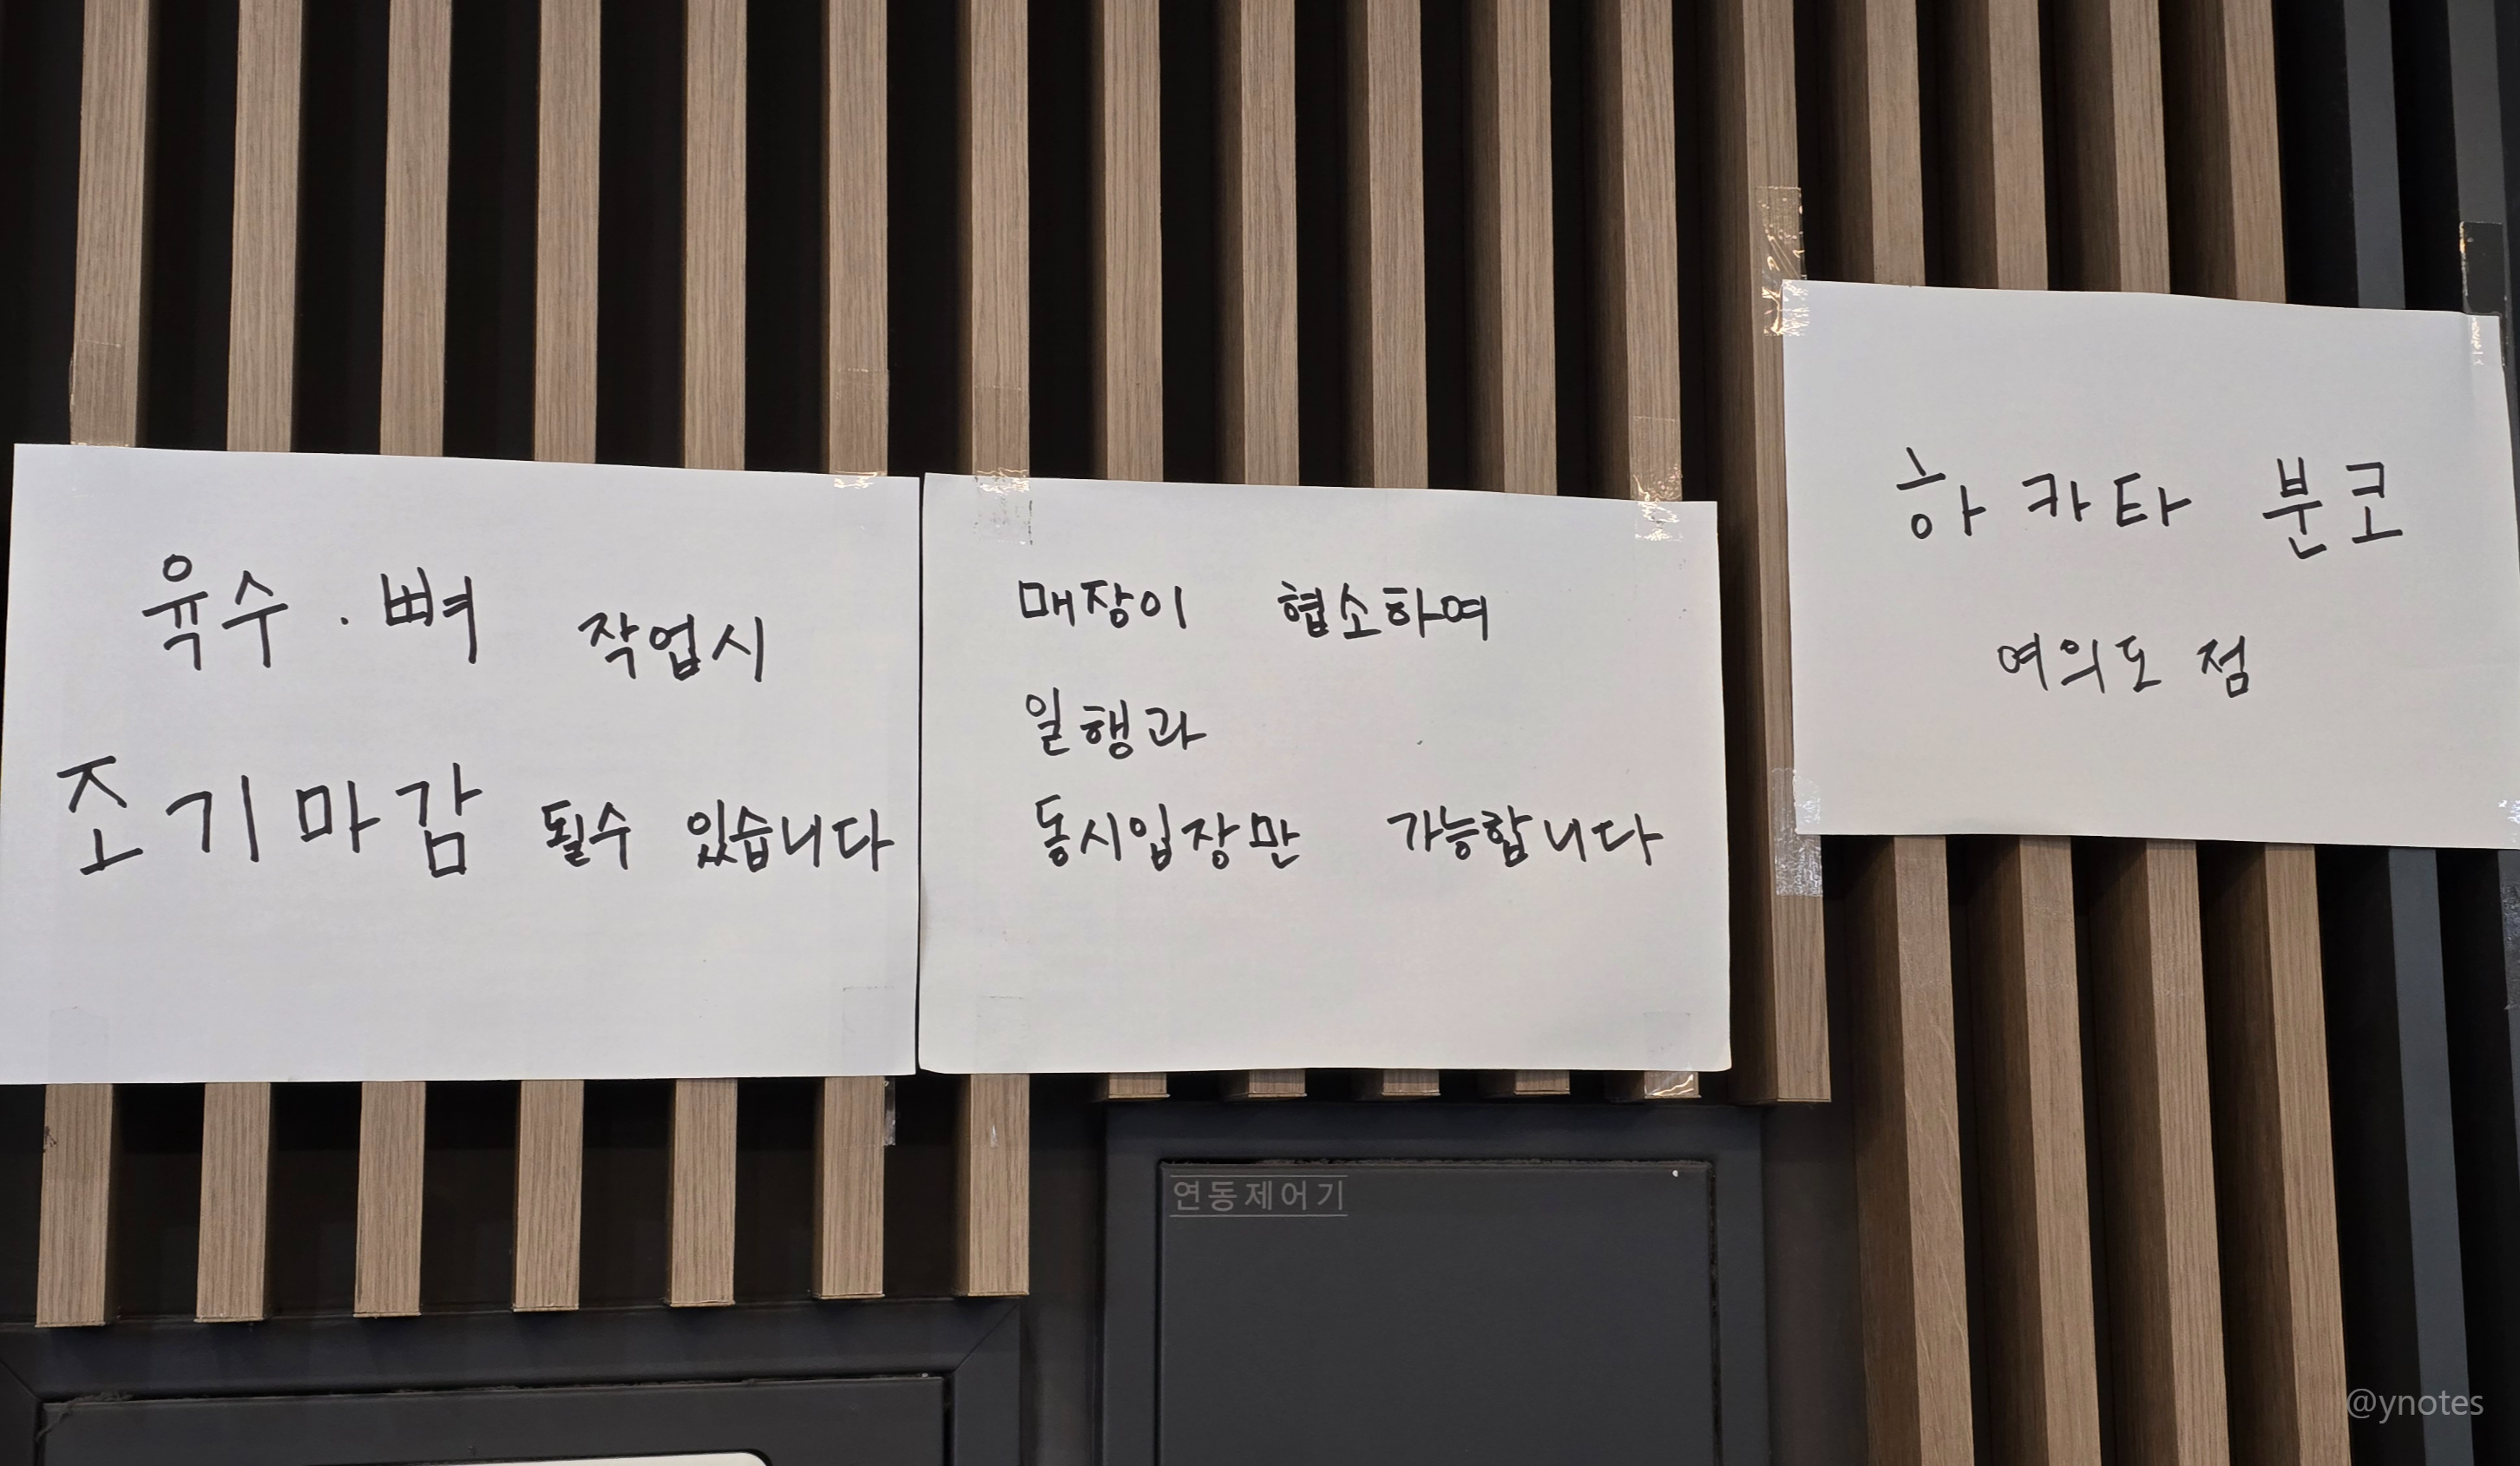 육수 · 뼈 작업시
조기마감 될수 있습니다
매장이 협소하여
일행과
동시입장만 가능합니다
하카타 분코
여의도 점
연동제어기
@ynotes